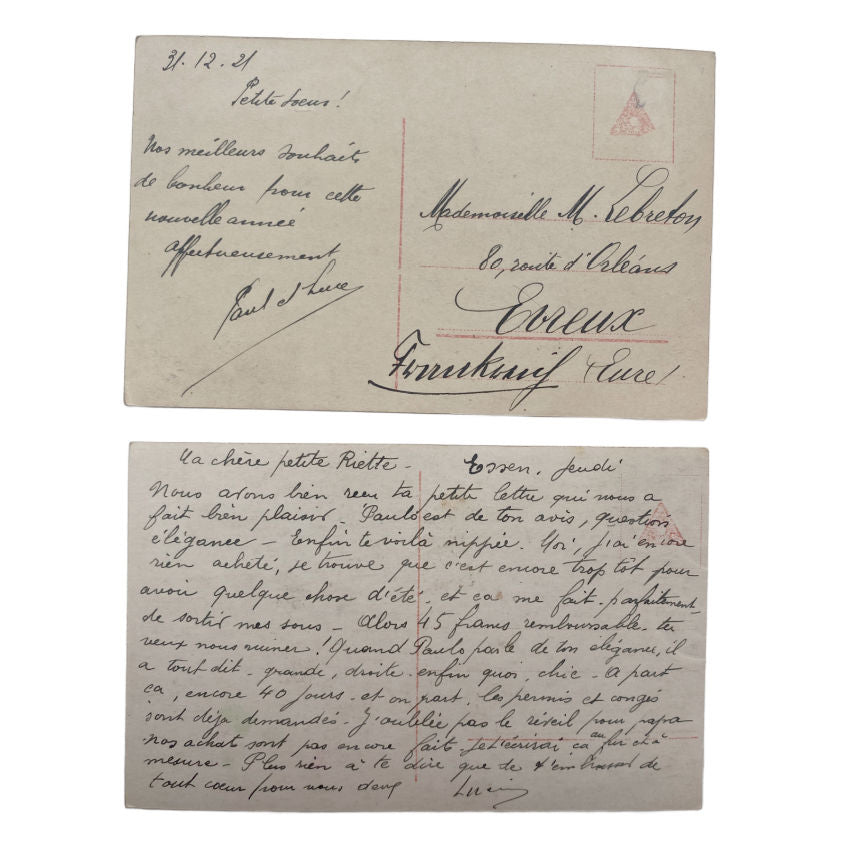 31.12.21
Petite soeur!
Nos meilleurs souhaits
de bonheur pour cette
nouvelle année
affectueusement
Paul et Luce
Mademoiselle M. Lebreton
80, route d'Orléans
Evreux
Frankreich (Eure)
Ma chère petite Riette - Essen, Jeudi
Nous avons bien reçu ta petite lettre qui nous a
fait bien plaisir - Paulo est de ton avis, question
élégance - Enfin te voilà nippée. Moi, j'ai encore
rien acheté, je trouve que c'est encore trop tôt pour
avoir quelque chose d'été, et ça me fait parfaitement
de sortir mes sous - Alors 45 francs remboursable. tu
veux nous ruiner! Quand Paulo parle de ton élégance, il
a tout dit - grande, droite - enfin quoi, chic - A part
ça, encore 40 jours - et on part. les permis et congés
sont déjà demandés - J'oublie pas le réveil pour papa
nos achat sont pas encore fait - Je t'écrirai ça au fur et à
mesure - Plus rien à te dire que de t'embrasser de
tout cœur pour nous deux